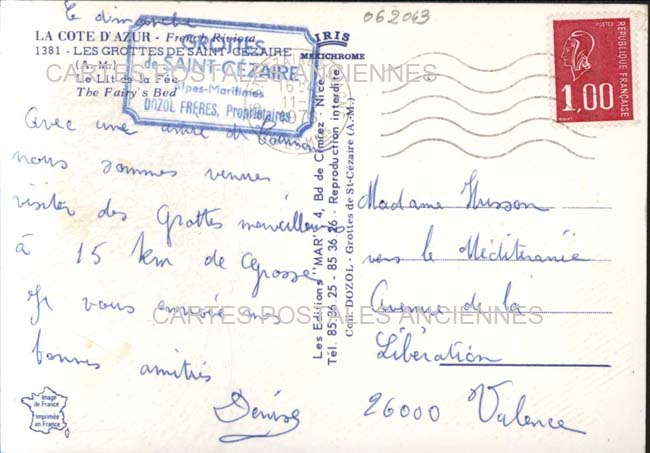 Le dimanche
062043
LA COTE D'AZUR - French Riviera
1381 - LES GROTTES DE SAINT-CÉZAIRE
(A.-M.)
Le Lit de la Fée
The Fairy's Bed
GROTTES
de SAINT-CÉZAIRE
Alpes-Maritimes
DOZOL FRÈRES, Propriétaires
IRIS
MEXICHROME
POSTES
RÉPUBLIQUE FRANÇAISE
1,00
CARTES POSTALES ANCIENNES
Avec une amie de
nous sommes venues
visiter des Grottes merveilleuses
à 15 km de Grasse
Je vous envoie mes
bonnes amitiés
Denise
Les Editions "MAR", 4, Bd de Cimiez - Nice
Tél. 85 36 25 - 85 36 26 - Reproduction interdite
Coll. DOZOL - Grottes de St-Cézaire (A.-M.)
Madame Husson
vers le Méditerranée
Avenue de la
Libération
26000 Valence
CARTES POSTALES ANCIENNES
Image
de France
Imprimée
en France